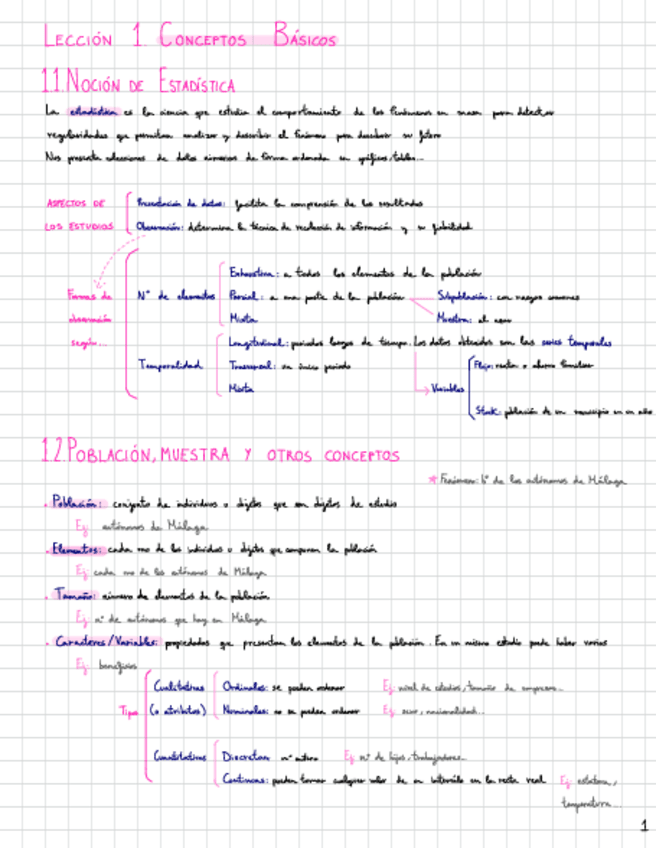 LECCIÓN 1. CONCEPTOS BÁSICOS
1.1. NOCIÓN DE ESTADÍSTICA
La estadística es la ciencia que estudia el comportamiento de los fenómenos en masa para detectar
regularidades que permitan analizar y describir el fenómeno para describir su futuro
Nos presenta colecciones de datos numéricos de forma ordenada en gráficos, tablas...
ASPECTOS DE
LOS ESTUDIOS
Presentación de datos: facilita la comprensión de los resultados
Observación: determina la técnica de recolección de información y su fiabilidad
Formas de
observación
según...
Nº de elementos
Exhaustiva: a todos los elementos de la población
Parcial: a una parte de la población
Subpoblación: con rasgos comunes
Muestra: al azar
Mixta
Temporalidad
Longitudinal: periodos largos de tiempo. Los datos obtenidos son las series temporales
Transversal: un único periodo
Mixta
Variables
Flujo:
Stock: población de un municipio en un año
1.2. POBLACIÓN, MUESTRA Y OTROS CONCEPTOS
* Fenómeno: bº de los autónomos de Málaga
· Población: conjunto de individuos u objetos que son objetos de estudio
Ej: autónomos de Málaga
· Elementos: cada uno de los individuos u objetos que componen la población
Ej: cada uno de los autónomos de Málaga
· Tamaño: número de elementos de la población
Ej: nº de autónomos que hay en Málaga
· Caracteres/Variables: propiedades que presentan los elementos de la población. En un mismo estudio puede haber varios
Ej: beneficios
Tipos
Cualitativas
(o atributos)
Ordinales: se pueden ordenar Ej: nivel de estudios, tamaño de empresa...
Nominales: no se pueden ordenar Ej: sexo, nacionalidad...
Cuantitativas
Discretas: nº entero Ej: nº de hijos, trabajadores...
Continuas: pueden tomar cualquier valor de un intervalo en la recta real Ej: estatura,
temperatura...
1